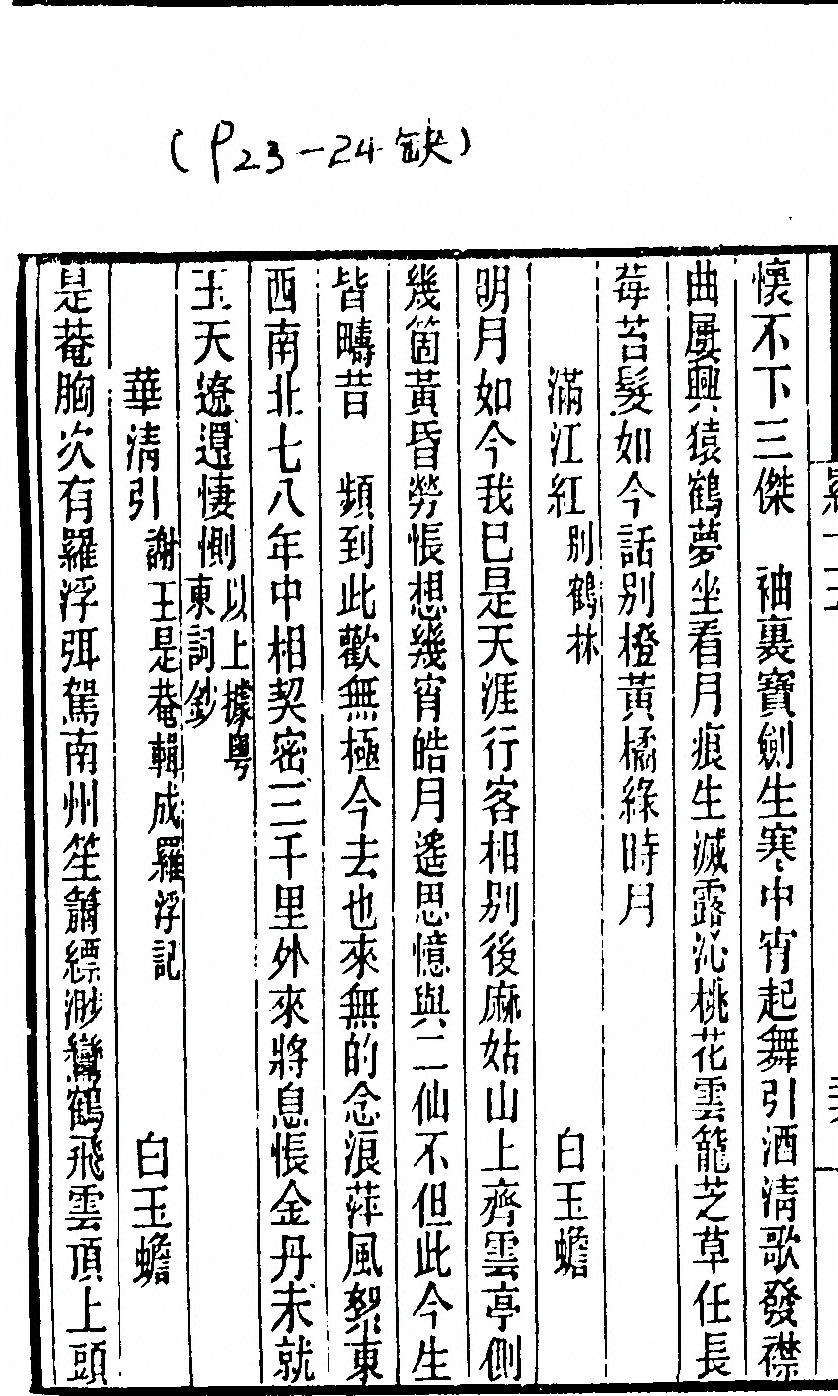 (P23-24缺)
懷不下三傑　袖裏寶劍生寒中宵起舞引酒清歌發襟
曲屢興猿鶴夢坐看月痕生滅露沁桃花雲籠芝草任長
莓苔髮如今話别橙黃橘綠時月
滿江紅 別鶴林 白玉蟾
明月如今我巳是天涯行客相别後麻姑山上齊雲亭側
幾箇黃昏勞悵想幾宵皓月遙思憶與二仙不但此今生
皆疇昔　頻到此歡無極今去也來無的念浪萍風絮東
西南北七八年中相契密三千里外來將息悵金丹未就
玉天遼還悽惻 以上據粵
東詞鈔
華清引 謝王是菴輯成羅浮記 白玉蟾
是菴胸次有羅浮弭駕南州笙簫縹渺鸞鶴飛雲頂上頭